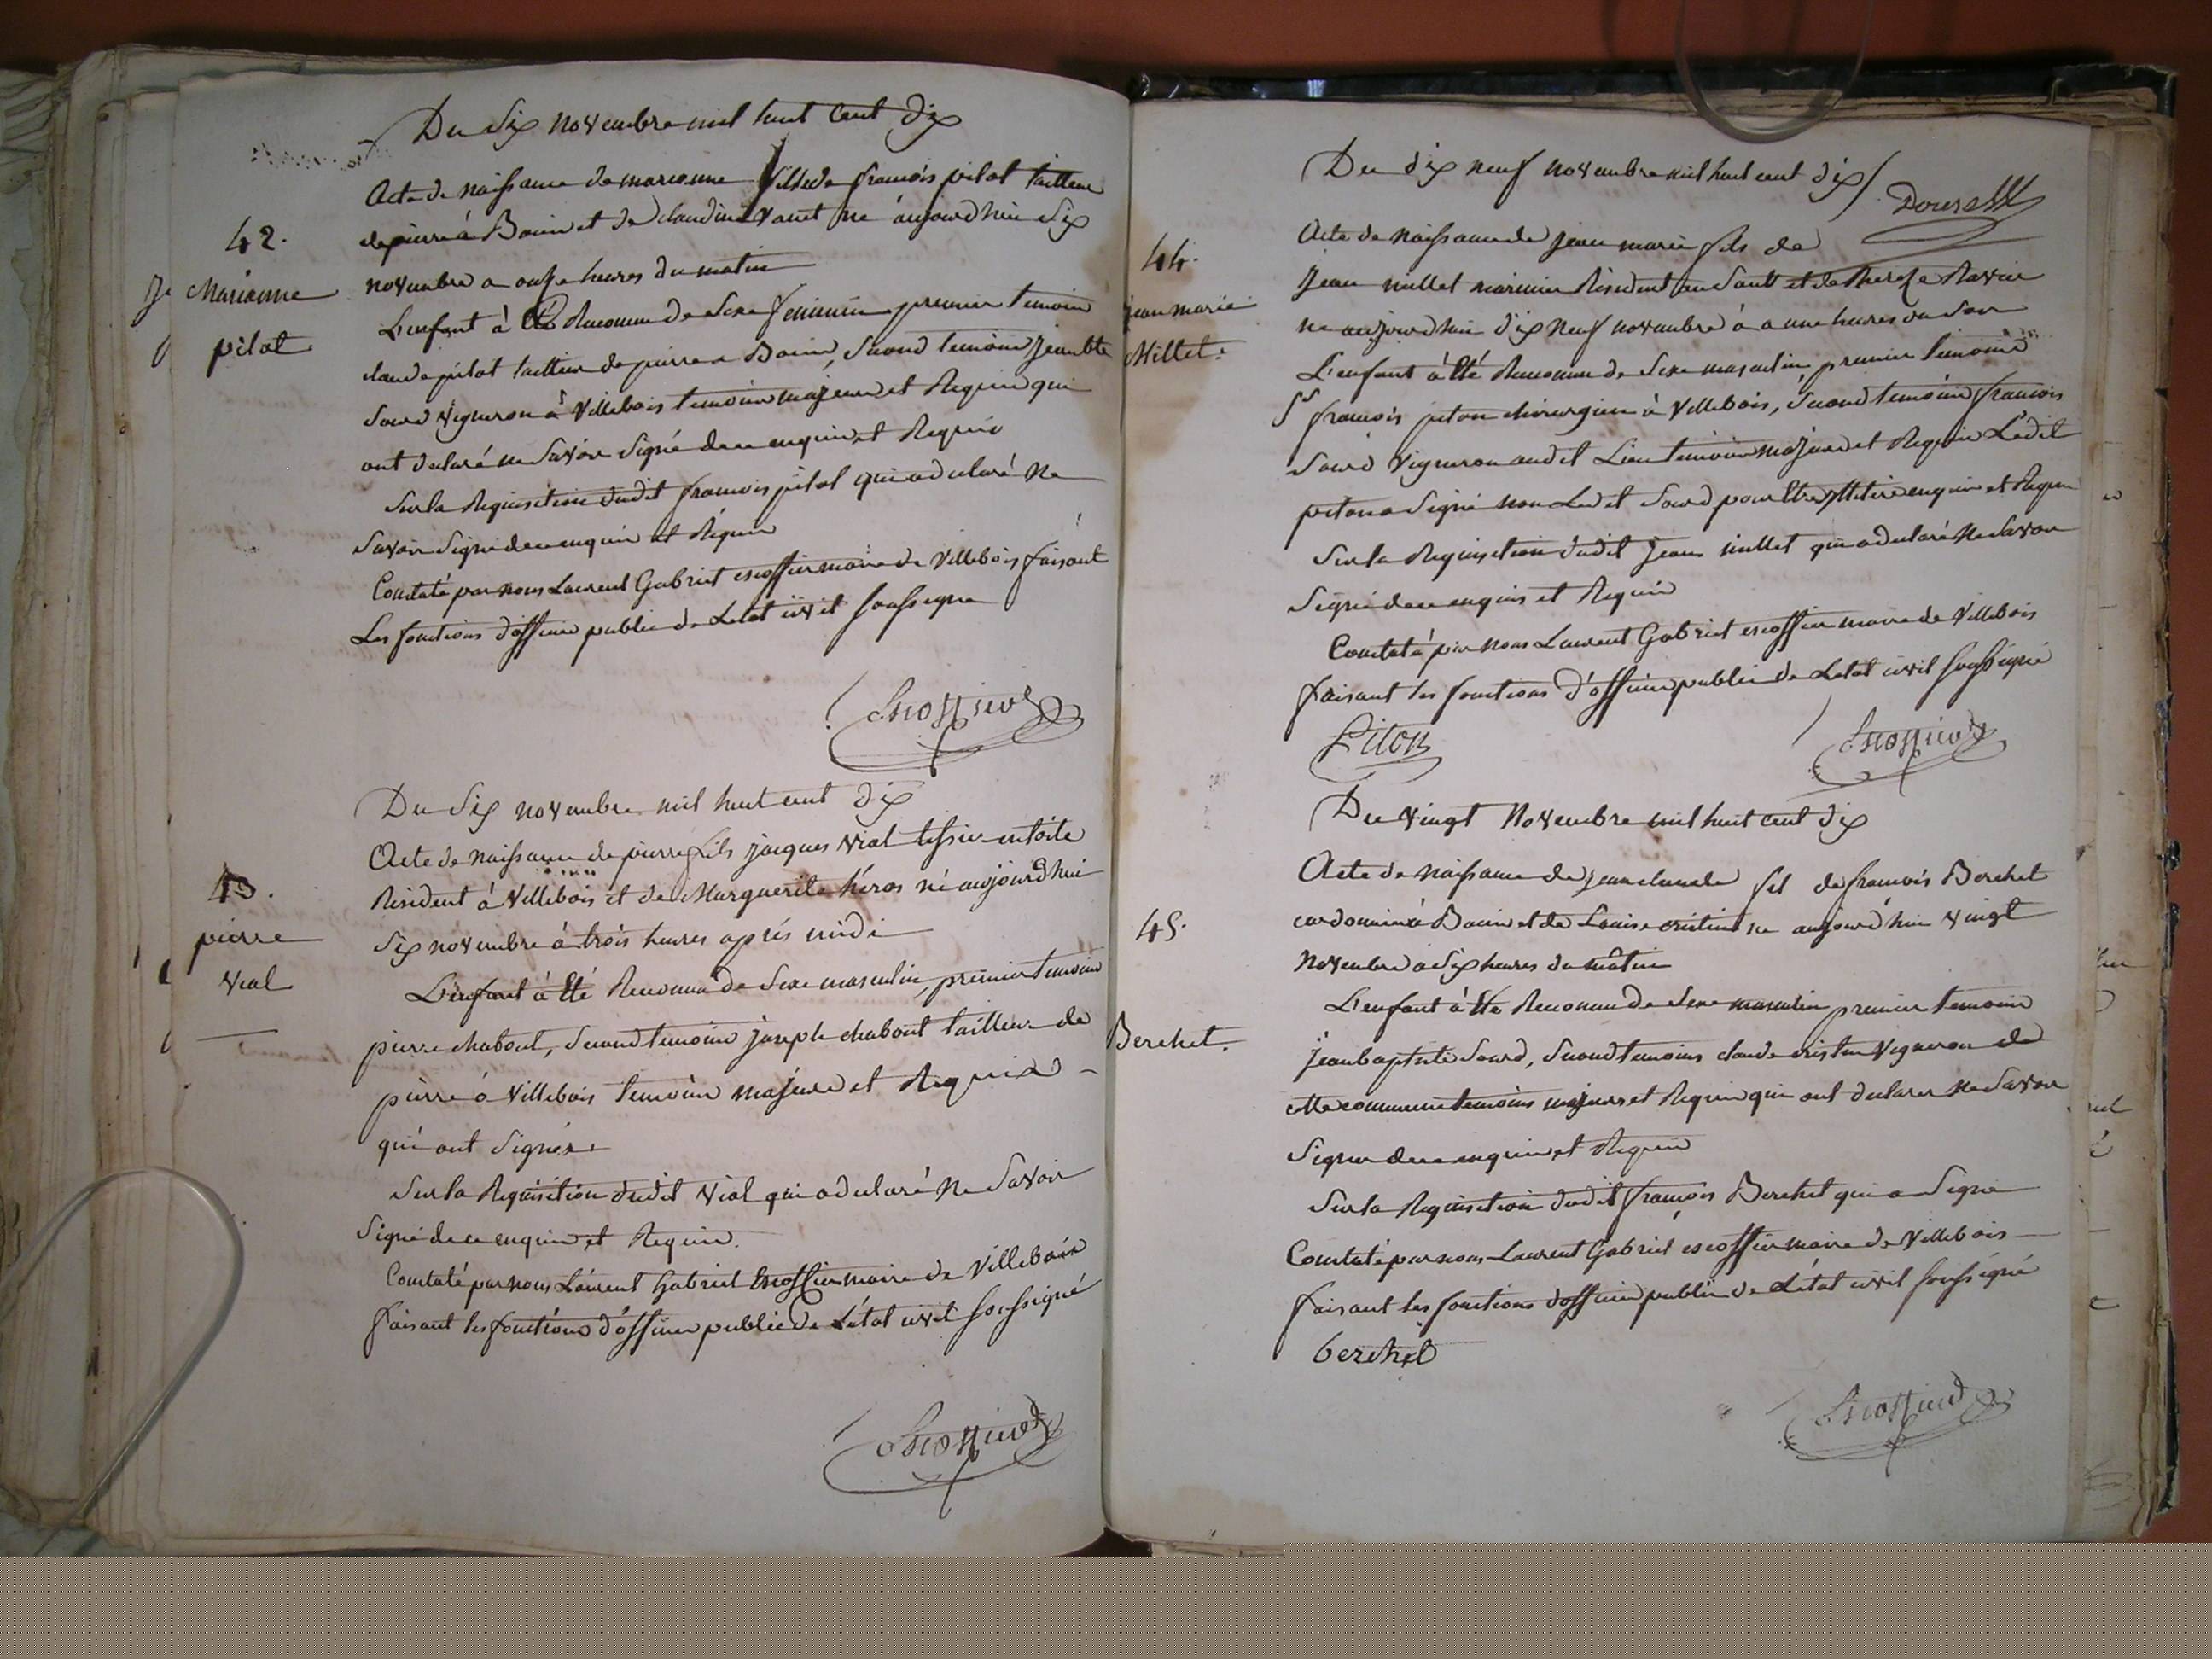 Du Six novembre mil huit cent dix
42.
Marianne
pilot
Acte de naissance de marianne fille de francois pilot tailleur
de pierre à Bouin et de claudine vanet né aujourd'hui Six
novembre a onze heures du matin
L'enfant à été Reconnu de Sexe feminin premier temoin
claude pilot tailleur de pierre a Bouin, Second temoin jean bte
Sourd vigneron à Villebois temoins majeur et Requis qui
ont declaré ne Savoir Signé de ce enquis et Requis
Sur la Requisition dudit francois pilot qui a declaré ne
Savoir Signé de ce enquis et Requis
Constaté par nous Laurent Gabriel escoffier maire de Villebois faisant
Les fonctions d'officier public de Letat civil soussigne
Escoffier
Du Six novembre mil huit cent dix
43.
pierre
vial
Acte de naissance de pierre fils jacques vial tissier en toile
Resident à Villebois et de Marguerite héros né aujourd'hui
Six novembre à trois heures aprés midi
L'enfant à été Reconnu de Sexe masculin, premier temoin
pierre chabout, Second temoin joseph chabout tailleur de
pierre à Villebois temoins majeur et Requis
qui ont Signés
Sur la Requisition dudit vial qui a declaré ne Savoir
Signé de ce enquis et Requis.
Constaté par nous Laurent Gabriel Escoffier maire de Villebois
faisant les fonctions d'officier public de L'état civil soussigné
Escoffier
Du dix neuf novembre mil huit cent dix
44.
jean marie
Millet.
Acte de naissance de jean marie fils de
Jean millet marinier Résident au Sault et de Thereze Ravier
né aujourd'hui dix neuf novembre à onze heures du Soir
L'enfant à été Reconnu de Sexe masculin premier temoin
Sr francois piton chirurgien à Villebois, Second temoin francois
Sourd vigneron audit Lieu temoins majeur et Requis Ledit
piton a Signé non Ledit Sourd pour être illitiré enquis et Requis
Sur la Requisition dudit Jean millet qui a declaré ne Savoir
Signé de ce enquis et Requis
Constaté par nous Laurent Gabriel escoffier maire de Villebois
faisant les fonctions d'officier public de Letat civil soussigné
Piton Escoffier
Du vingt Novembre mil huit cent dix
45.
Berchet.
Acte de naissance de jean claude fil de francois Berchet
cordonnier à Bouin et de Louise cristin né aujourd'hui vingt
Novembre a Six heures du matin
L'enfant à été Reconnu de Sexe masculin premier temoin
jean baptiste Sourd, Second temoins claude cristin vigneron de
cette commune temoins majeurs et Requis qui ont declarer ne Savoir
Signer de ce enquis et Requis
Sur la Requisition dudit françois Berchet qui a Signé
Constaté par nous Laurent Gabriel escoffier maire de Villebois
faisant les fonctions d'officier public de L'état civil soussigné
berchet
Escoffier